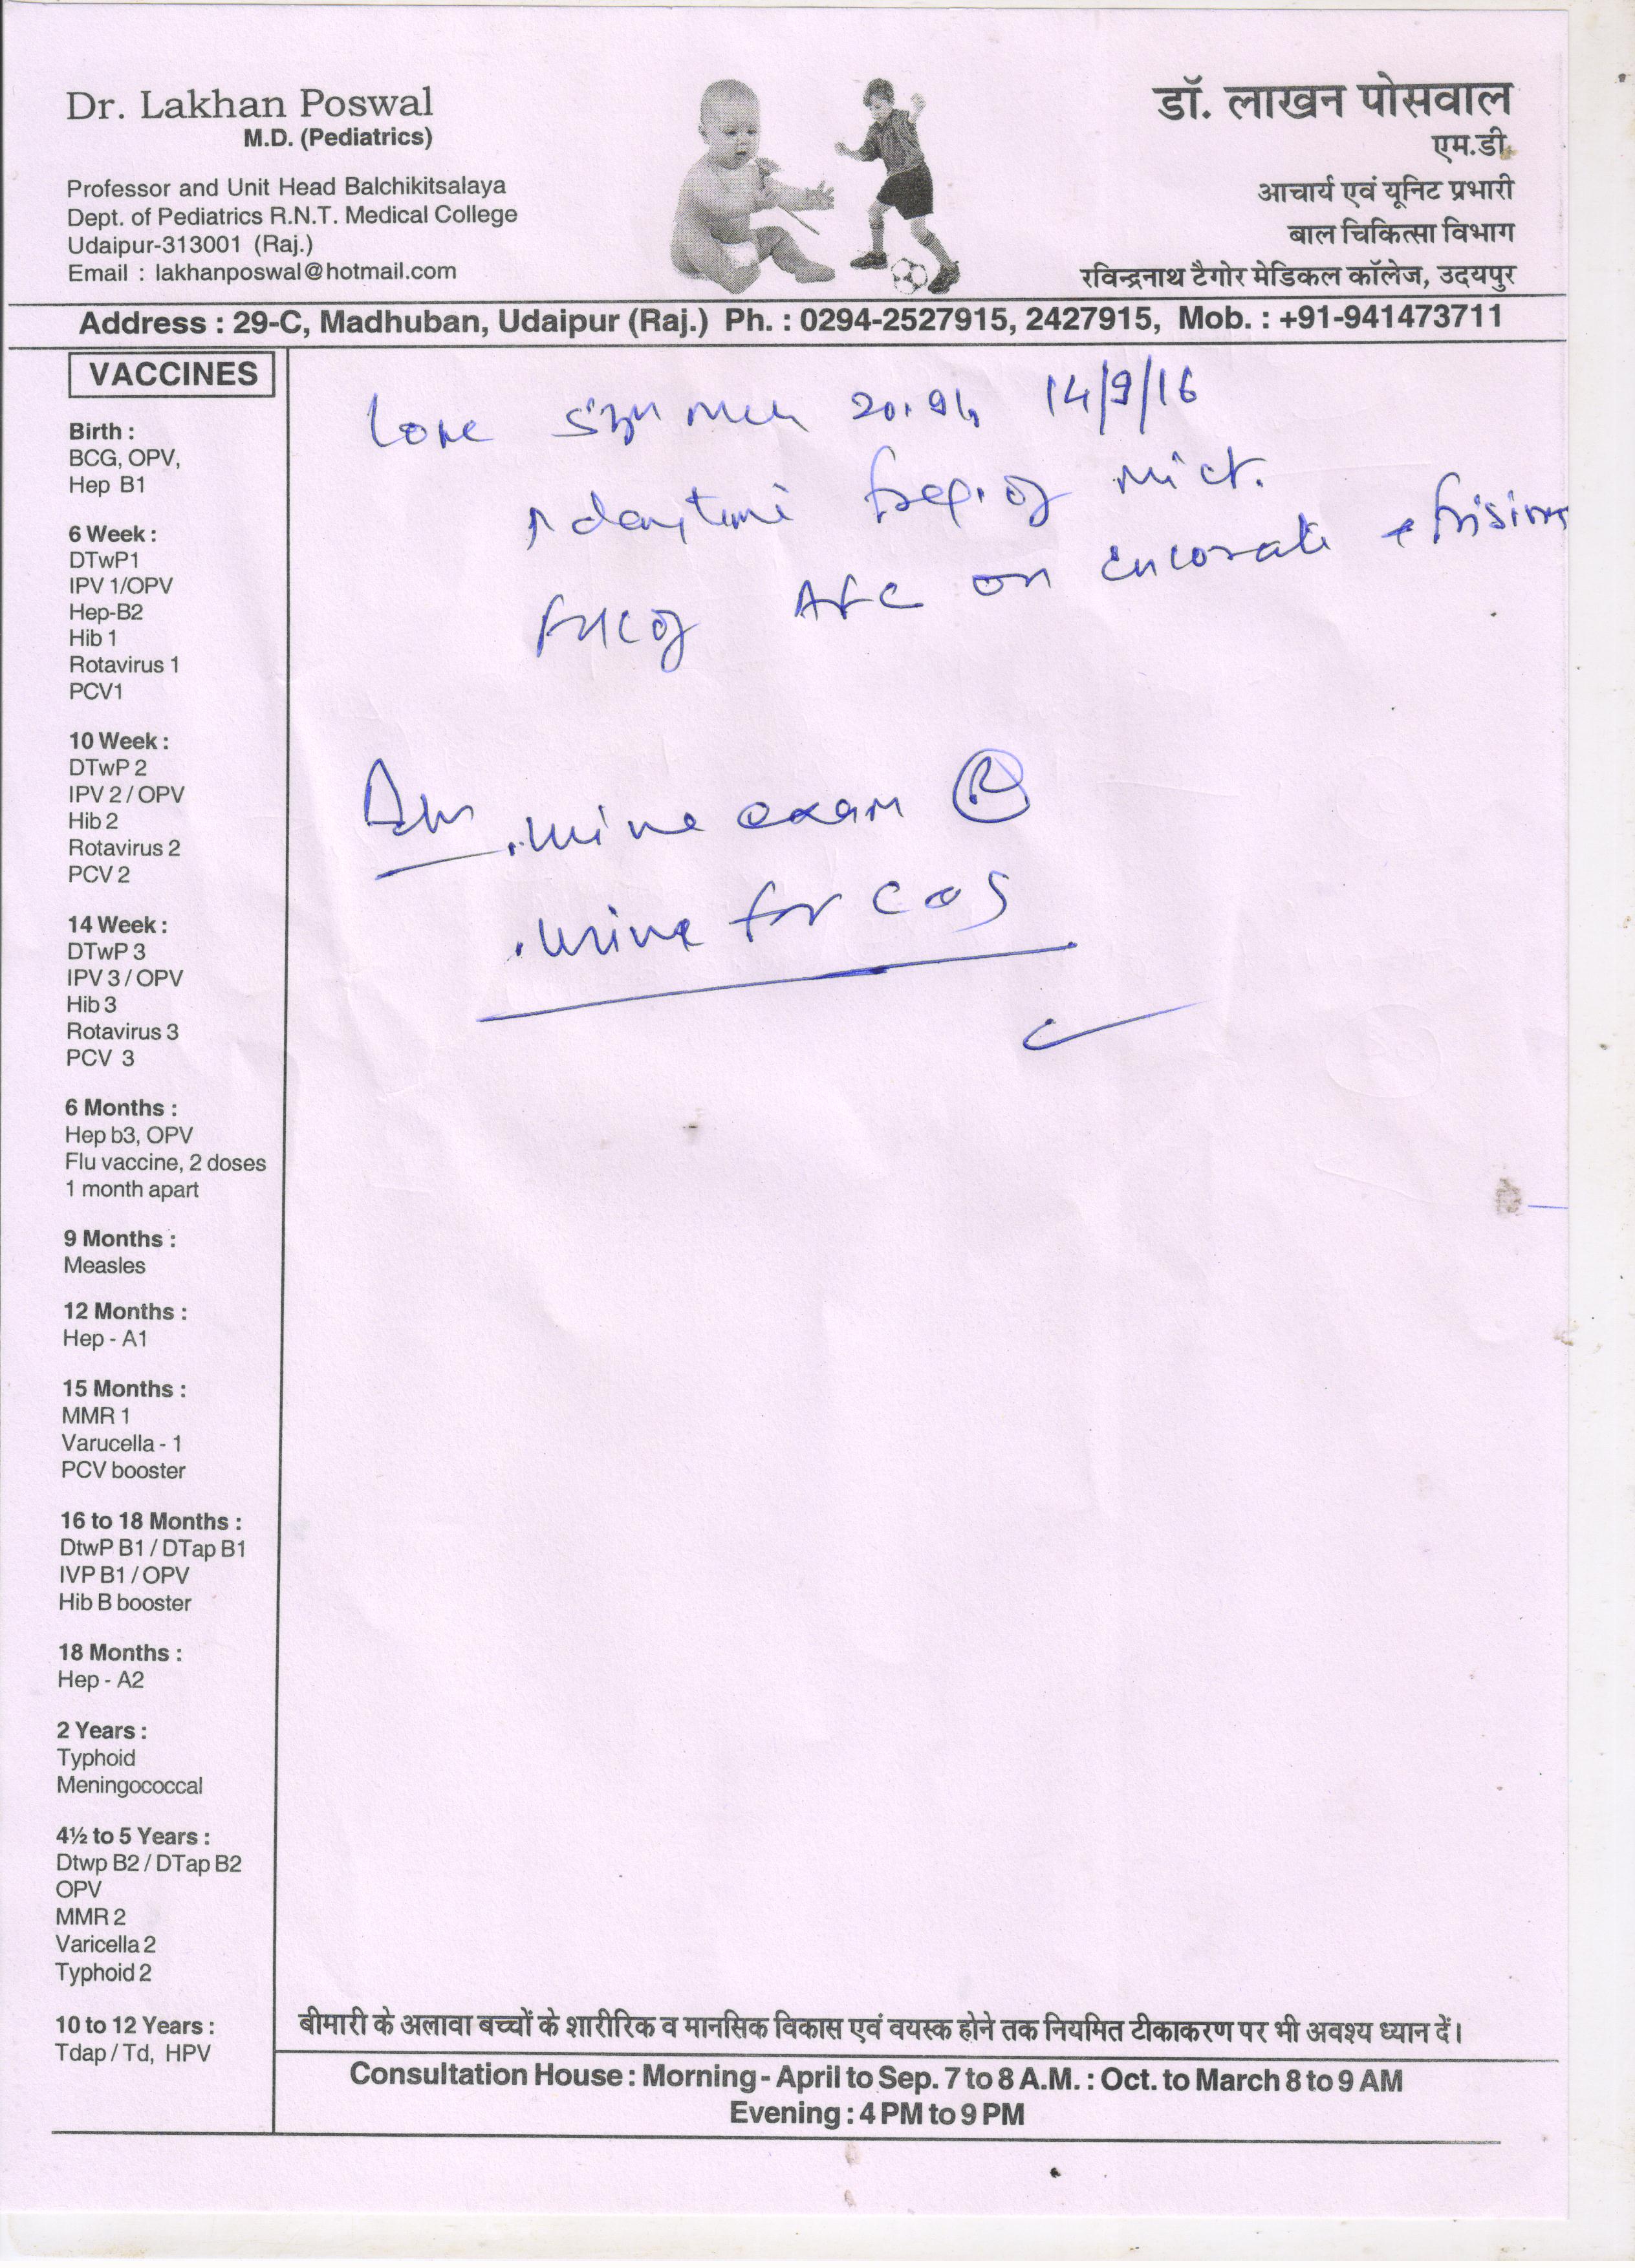 Dr. Lakhan Poswal
M.D. (Pediatrics)
Professor and Unit Head Balchikitsalaya
Dept. of Pediatrics R.N.T. Medical College
Udaipur-313001 (Raj.)
Email : lakhanposwal@hotmail.com
डॉ. लाखन पोसवाल
एम.डी.
आचार्य एवं यूनिट प्रभारी
बाल चिकित्सा विभाग
रविन्द्रनाथ टैगोर मेडिकल कॉलेज, उदयपुर
Address : 29-C, Madhuban, Udaipur (Raj.) Ph. : 0294-2527915, 2427915, Mob. : +91-941473711
VACCINES
Birth :
BCG, OPV,
Hep B1
6 Week :
DTwP1
IPV 1/OPV
Hep-B2
Hib 1
Rotavirus 1
PCV1
10 Week :
DTwP 2
IPV 2 / OPV
Hib 2
Rotavirus 2
PCV 2
14 Week :
DTwP 3
IPV 3 / OPV
Hib 3
Rotavirus 3
PCV 3
6 Months :
Hep b3, OPV
Flu vaccine, 2 doses
1 month apart
9 Months :
Measles
12 Months :
Hep - A1
15 Months :
MMR 1
Varucella - 1
PCV booster
16 to 18 Months :
DtwP B1 / DTap B1
IVP B1 / OPV
Hib B booster
18 Months :
Hep - A2
2 Years :
Typhoid
Meningococcal
4½ to 5 Years :
Dtwp B2 / DTap B2
OPV
MMR 2
Varicella 2
Typhoid 2
10 to 12 Years :
Tdap / Td, HPV
14/9/16
↑ daytime freq. of mict.
on encorate
urine exam (R)
urine for C&S
बीमारी के अलावा बच्चों के शारीरिक व मानसिक विकास एवं वयस्क होने तक नियमित टीकाकरण पर भी अवश्य ध्यान दें।
Consultation House : Morning - April to Sep. 7 to 8 A.M. : Oct. to March 8 to 9 AM
Evening : 4 PM to 9 PM